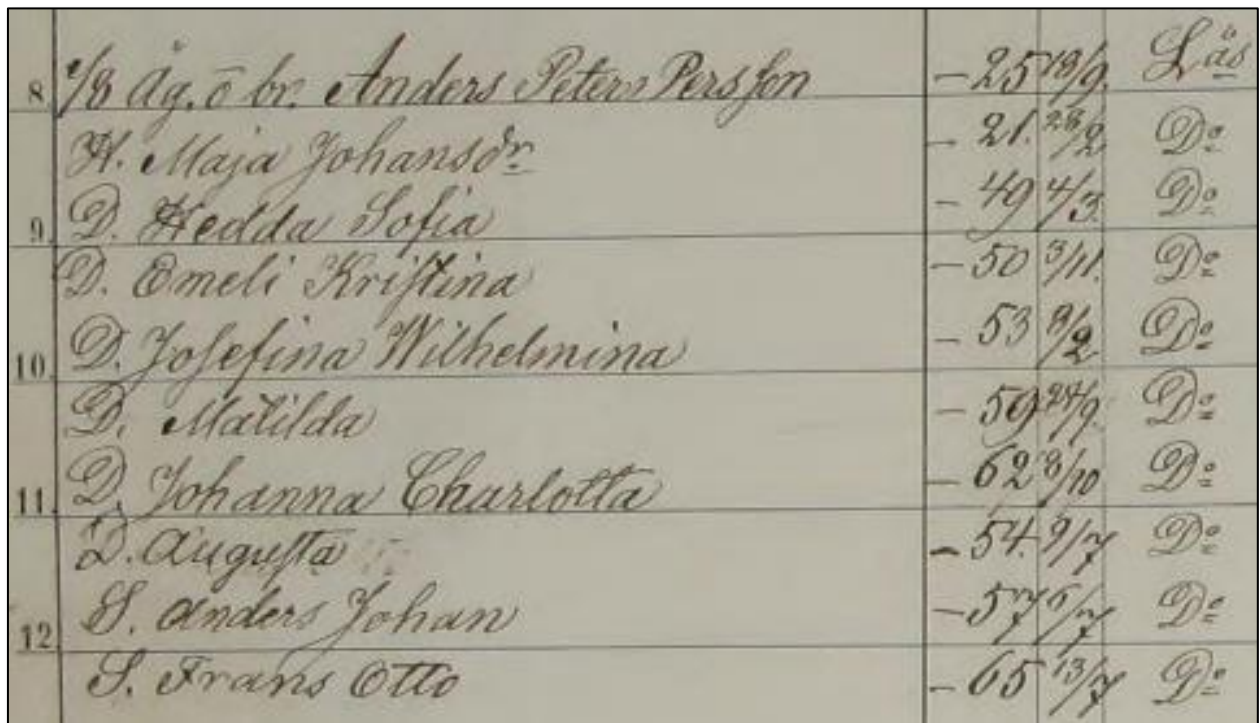 8 1/8 Äg. o br. Anders Peter Persson - 25 18/9. Läs
H. Maja Johansdr - 21. 28/2 Do
9 D. Hedda Sofia - 49 4/3. Do
D. Emeli Kristina - 50 3/11. Do
10 D. Josefina Wilhelmina - 53 8/2 Do
D. Matilda - 59 24/9. Do
11 D. Johanna Charlotta - 62 8/10 Do
D. Augusta - 54. 9/7 Do
12 S. Anders Johan - 57 5/7 Do
S. Frans Otto - 65 13/7 Do